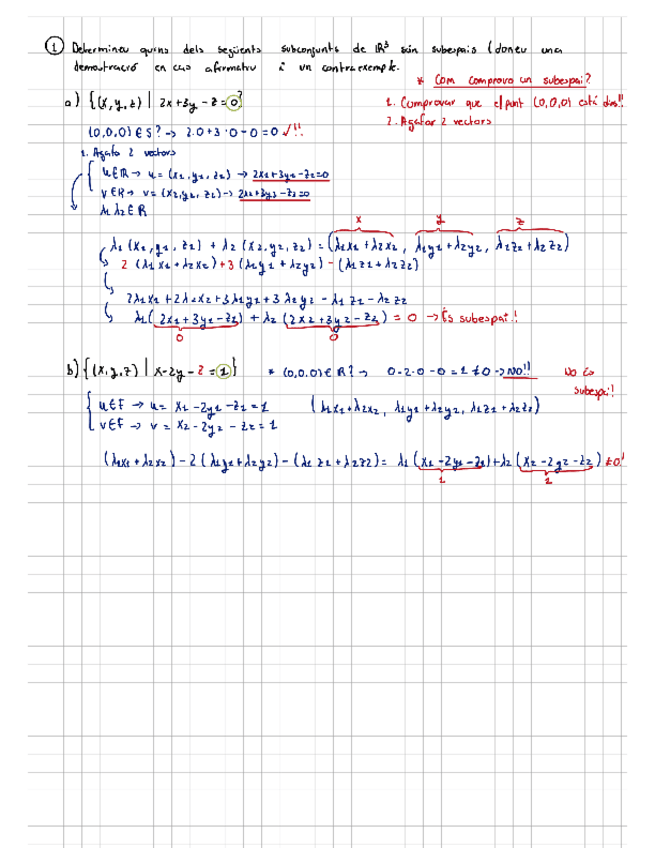 ① Determineu quins dels següents subconjunts de IR³ són subespais (doneu una
demostració en cas afirmatiu i un contraexemple.
* Com comprovo un subespai?
1. Comprovar que el punt (0,0,0) està dins!!
2. Agafar 2 vectors
a) {(x,y,z) | 2x+3y-z=0}
(0,0,0) ∈ S? → 2·0+3·0-0=0 ✓!!
1. Agafo 2 vectors
u∈R → u=(x₁,y₁,z₁) → 2x₁+3y₁-z₁=0
v∈R → v=(x₂,y₂,z₂) → 2x₂+3y₂-z₂=0
λ₁ λ₂∈R
x y z
λ₁(x₁,y₁,z₁) + λ₂(x₂,y₂,z₂) = (λ₁x₁+λ₂x₂, λ₁y₁+λ₂y₂, λ₁z₁+λ₂z₂)
2(λ₁x₁+λ₂x₂)+3(λ₁y₁+λ₂y₂)-(λ₁z₁+λ₂z₂)
2λ₁x₁+2λ₂x₂+3λ₁y₁+3λ₂y₂-λ₁z₁-λ₂z₂
λ₁(2x₁+3y₁-z₁)+λ₂(2x₂+3y₂-z₂)=0 → És subespai!!
0 0
b) {(x,y,z) | x-2y-z=1} * (0,0,0)∈R? → 0-2·0-0=1≠0 → NO!! No és
subespai!
u∈F → u=x₁-2y₁-z₁=1 (λ₁x₁+λ₂x₂, λ₁y₁+λ₂y₂, λ₁z₁+λ₂z₂)
v∈F → v=x₂-2y₂-z₂=1
(λ₁x₁+λ₂x₂)-2(λ₁y₁+λ₂y₂)-(λ₁z₁+λ₂z₂)=λ₁(x₁-2y₁-z₁)+λ₂(x₂-2y₂-z₂)≠0!
1 1